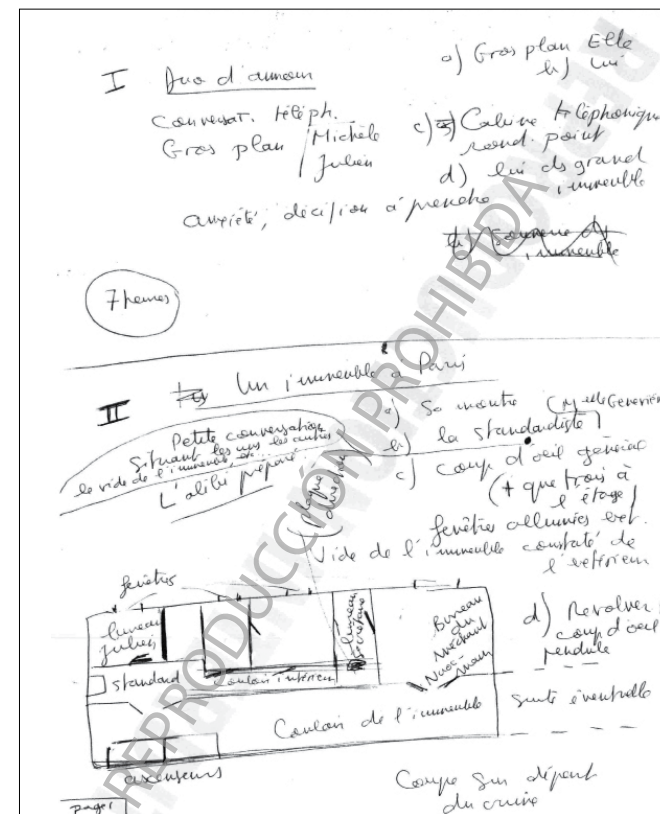 I Duo d'amour
Conversat. téléph.
Gros plan / Michèle
Julien
anxiété, décision à prendre
a) Gros plan Elle
b) Lui
c) Cabine téléphonique
rond. point
d) lui ds grand
immeuble
immeuble
7 heures
II Un immeuble à Paris
Petite conversation
situant les uns les autres
le vide de l'immeuble,
L'alibi préparé
(plaque
direction)
a) Sa montre (Melle Geneviève
b) la standardiste)
c) Coup d'oeil général
(+ que trois à
l'étage)
fenêtres allumées
Vide de l'immeuble constaté de
l'extérieur
d) Revolver
coup d'oeil
pendule
fenêtres
bureau
Julien
bureau
secrétaire
Bureau
du
méchant
standard
Couloir intérieur
Couloir de l'immeuble
suite éventuelle
ascenseurs
Coupe sur départ
du crime
page 1
REPRODUCCIÓN PROHIBIDA